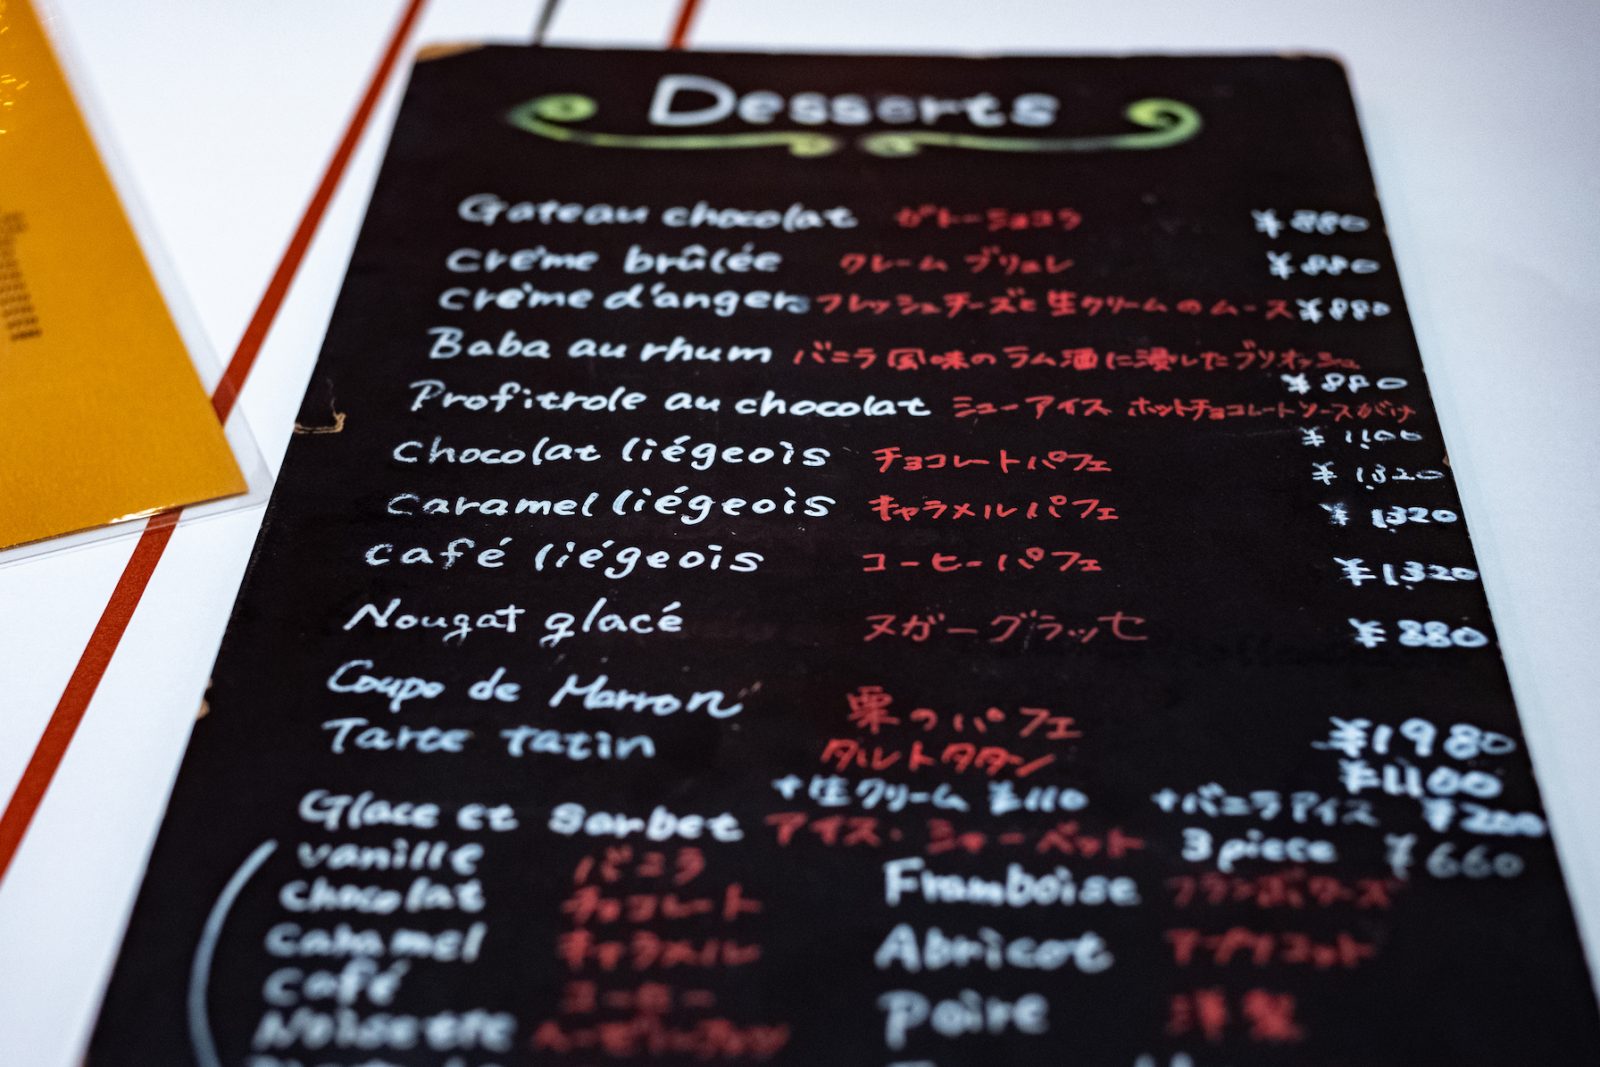 Desserts
Gateau chocolat ガトーショコラ ¥880
Crème brûlée クレームブリュレ ¥880
Crème d'angers フレッシュチーズと生クリームのムース ¥880
Baba au rhum バニラ風味のラム酒に浸したブリオッシュ
¥880
Profitrole au chocolat シューアイス ホットチョコレートソースがけ
¥1100
Chocolat liégeois チョコレートパフェ ¥1,320
Caramel liégeois キャラメルパフェ ¥1,320
Café liégeois コーヒーパフェ ¥1,320
Nougat glacé ヌガーグラッセ ¥880
Coupe de Marron 栗のパフェ ¥1980
Tarte tatin タルトタタン ¥1100
+生クリーム ¥110 +バニラアイス ¥200
Glace et sorbet アイス・シャーベット 3 piece ¥660
vanille バニラ
Framboise フランボワーズ
chocolat チョコレート
caramel キャラメル
Abricot アプリコット
café コーヒー
Noisette ヘーゼルナッツ
Poire 洋梨